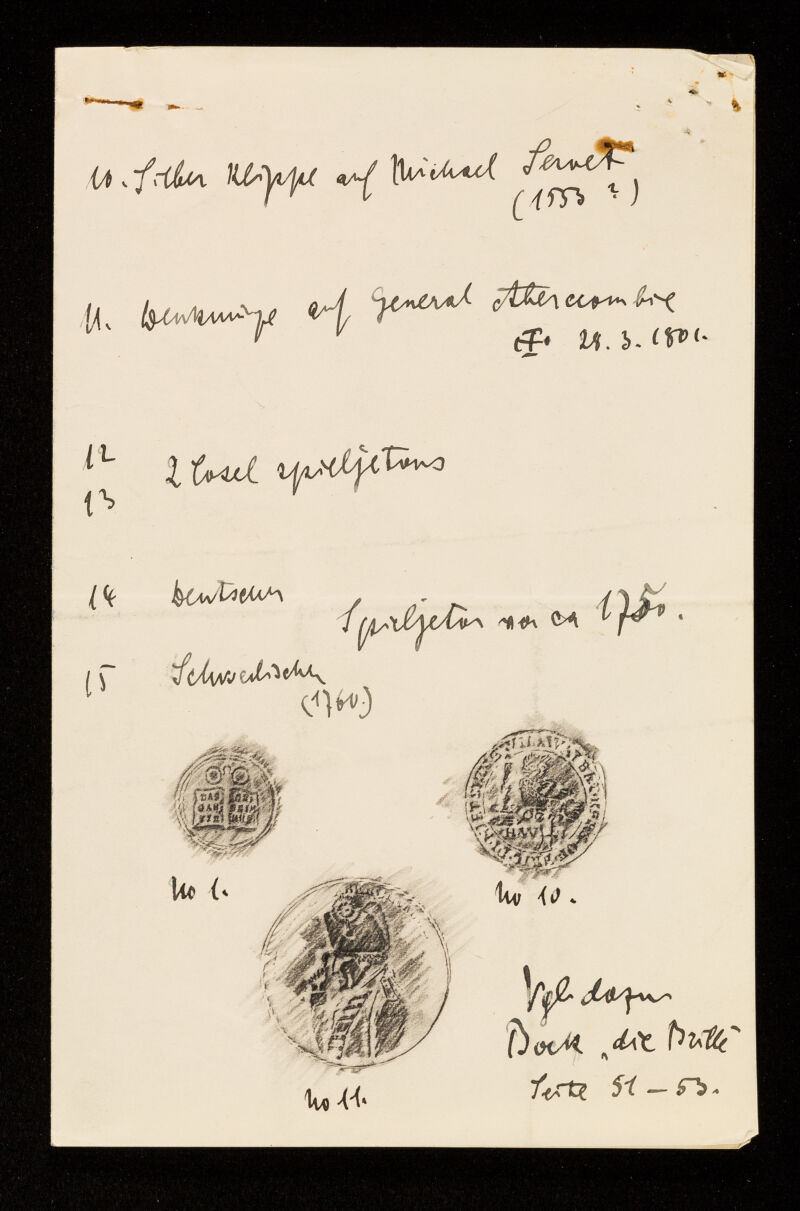 10. Silber Klippe auf Michael Servet
(1553 ?)
11. Denkmünze auf General Abercrombie
28.3.1801.
12
13
2 spieljetons
14 Deutscher
Spieljeton von ca 1750.
15 Schwedischer
(1760.)
DAS
GAN
ZE
GE
HEIM
NUS
No 1.
No 10.
No 11.
Vgl. dazu
Bock „die Brille"
Seite 51 – 53.